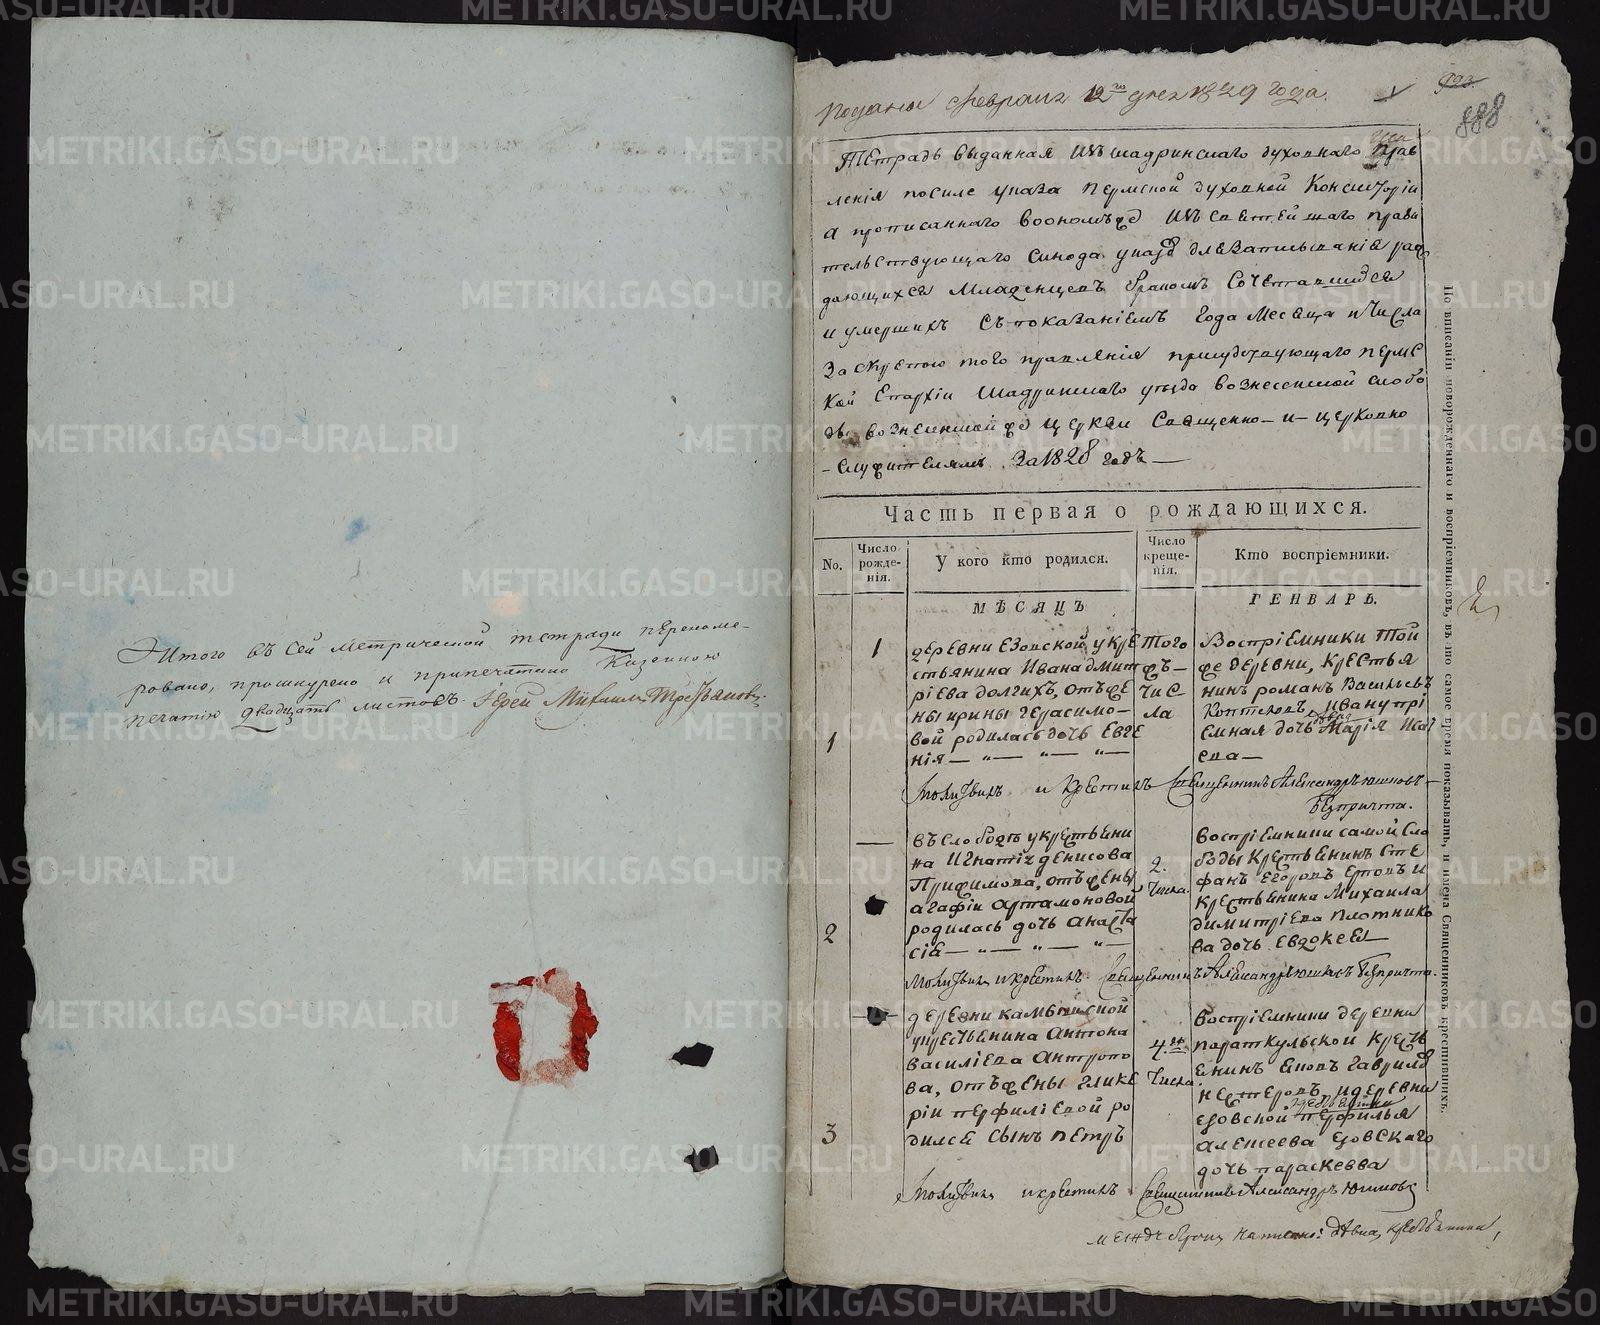 Итого въ сей метрической тетради переноме-
ровано, прошнурено и припечатано Казенною
печатію двадцать листовъ. Іерей Михаилъ
Поданы февраля 12го дня 1829 года.
888
Тетрадь выданная изъ шадринскаго духовнаго прав
ленія посиле указа пермской духовной Консисторіи
а прописаннаго воономъже изъ святейшаго прави
тельствующаго синода указа длязаписыванія раж
дающихся младенцевъ бракомъ Сочетавшихся
и умершихъ съ показаніемъ года месяца и числа
за скрепою того правленія присудствующаго пермс
кой Епархіи шадринскаго уезда вознесенской слобо
ды вознесенской же церкви Священно-и-церковно
-служителямъ за 1828 годъ
Часть первая о рождающихся.
No.
Число рожде-нія.
У кого кто родился.
Число креще-нія.
Кто воспріемники.
МѢСЯЦЪ ГЕНВАРЬ.
1
1
деревни Езовской у кре
стьянина Ивана дмит
ріева долгихъ, отъ же
ны ирины герасимо-
вой родилась дочь Евге
нія
Того
жъ-
чис
ла
Воспріемники той
же деревни, крестья
нинъ романъ Васильевъ
Ивану прі
емная дочь Марія Иса
ева
Молитвилъ и крестилъ Священникъ Александръ Юшковъ
безпричта.
2
въ слободе у крестьяни
на Игнатія денисова
Труфимова, отъ жены
агафіи артамоновой
родилась дочь анаста
сія
2.
числа.
воспріемники самой сло
боды крестьянинъ сте
фанъ Егоровъ и
крестьянина Михаила
димитріева плотнико
ва дочь Евдокея
Молитвилъ и крестилъ Священникъ Александръ Юшковъ безпричта.
3
деревни камышской
у крестьянина Антона
василіева антропо
ва, отъ жены глике
ріи перфиліевой ро
дился сынъ петръ
4го
числа
воспріемники деревни
параткульской кресть
янинъ
нестеровъ, и деревни
езовской крестьянина перфилья
алексеева езовскаго
дочь параскевва
Молитвилъ и крестилъ Священникъ Александръ Юшковъ
между строк написано: девка, крестьянина,
По вписаніи новорожденнаго и воспріемниковъ, въ то самое время показывать, и имена Священниковъ крестившихъ.
METRIKI.GASO-URAL.RU